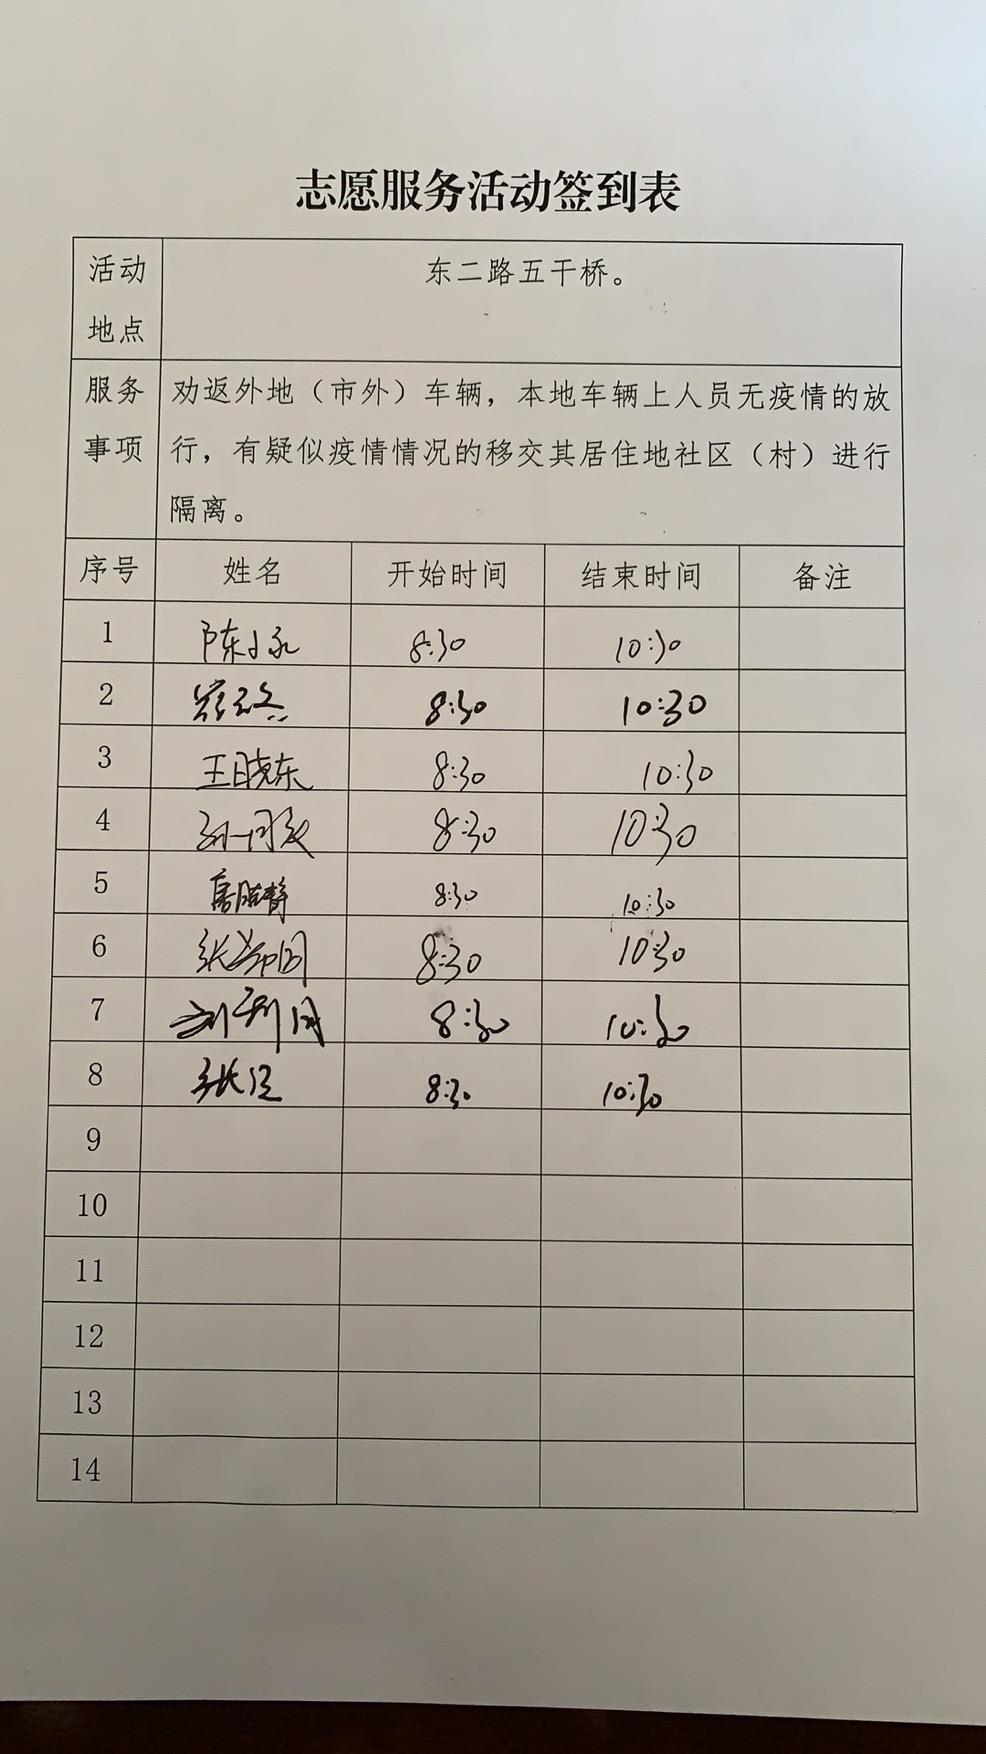 志愿服务活动签到表
活动地点 东二路五干桥。
服务事项 劝返外地（市外）车辆，本地车辆上人员无疫情的放
行，有疑似疫情情况的移交其居住地社区（村）进行
隔离。
序号 姓名 开始时间 结束时间 备注
1 陈小永 8:30 10:30
2 8:30 10:30
3 王晓东 8:30 10:30
4 8:30 10:30
5 8:30 10:30
6 8:30 10:30
7 8:30 10:30
8 8:30 10:30
9
10
11
12
13
14